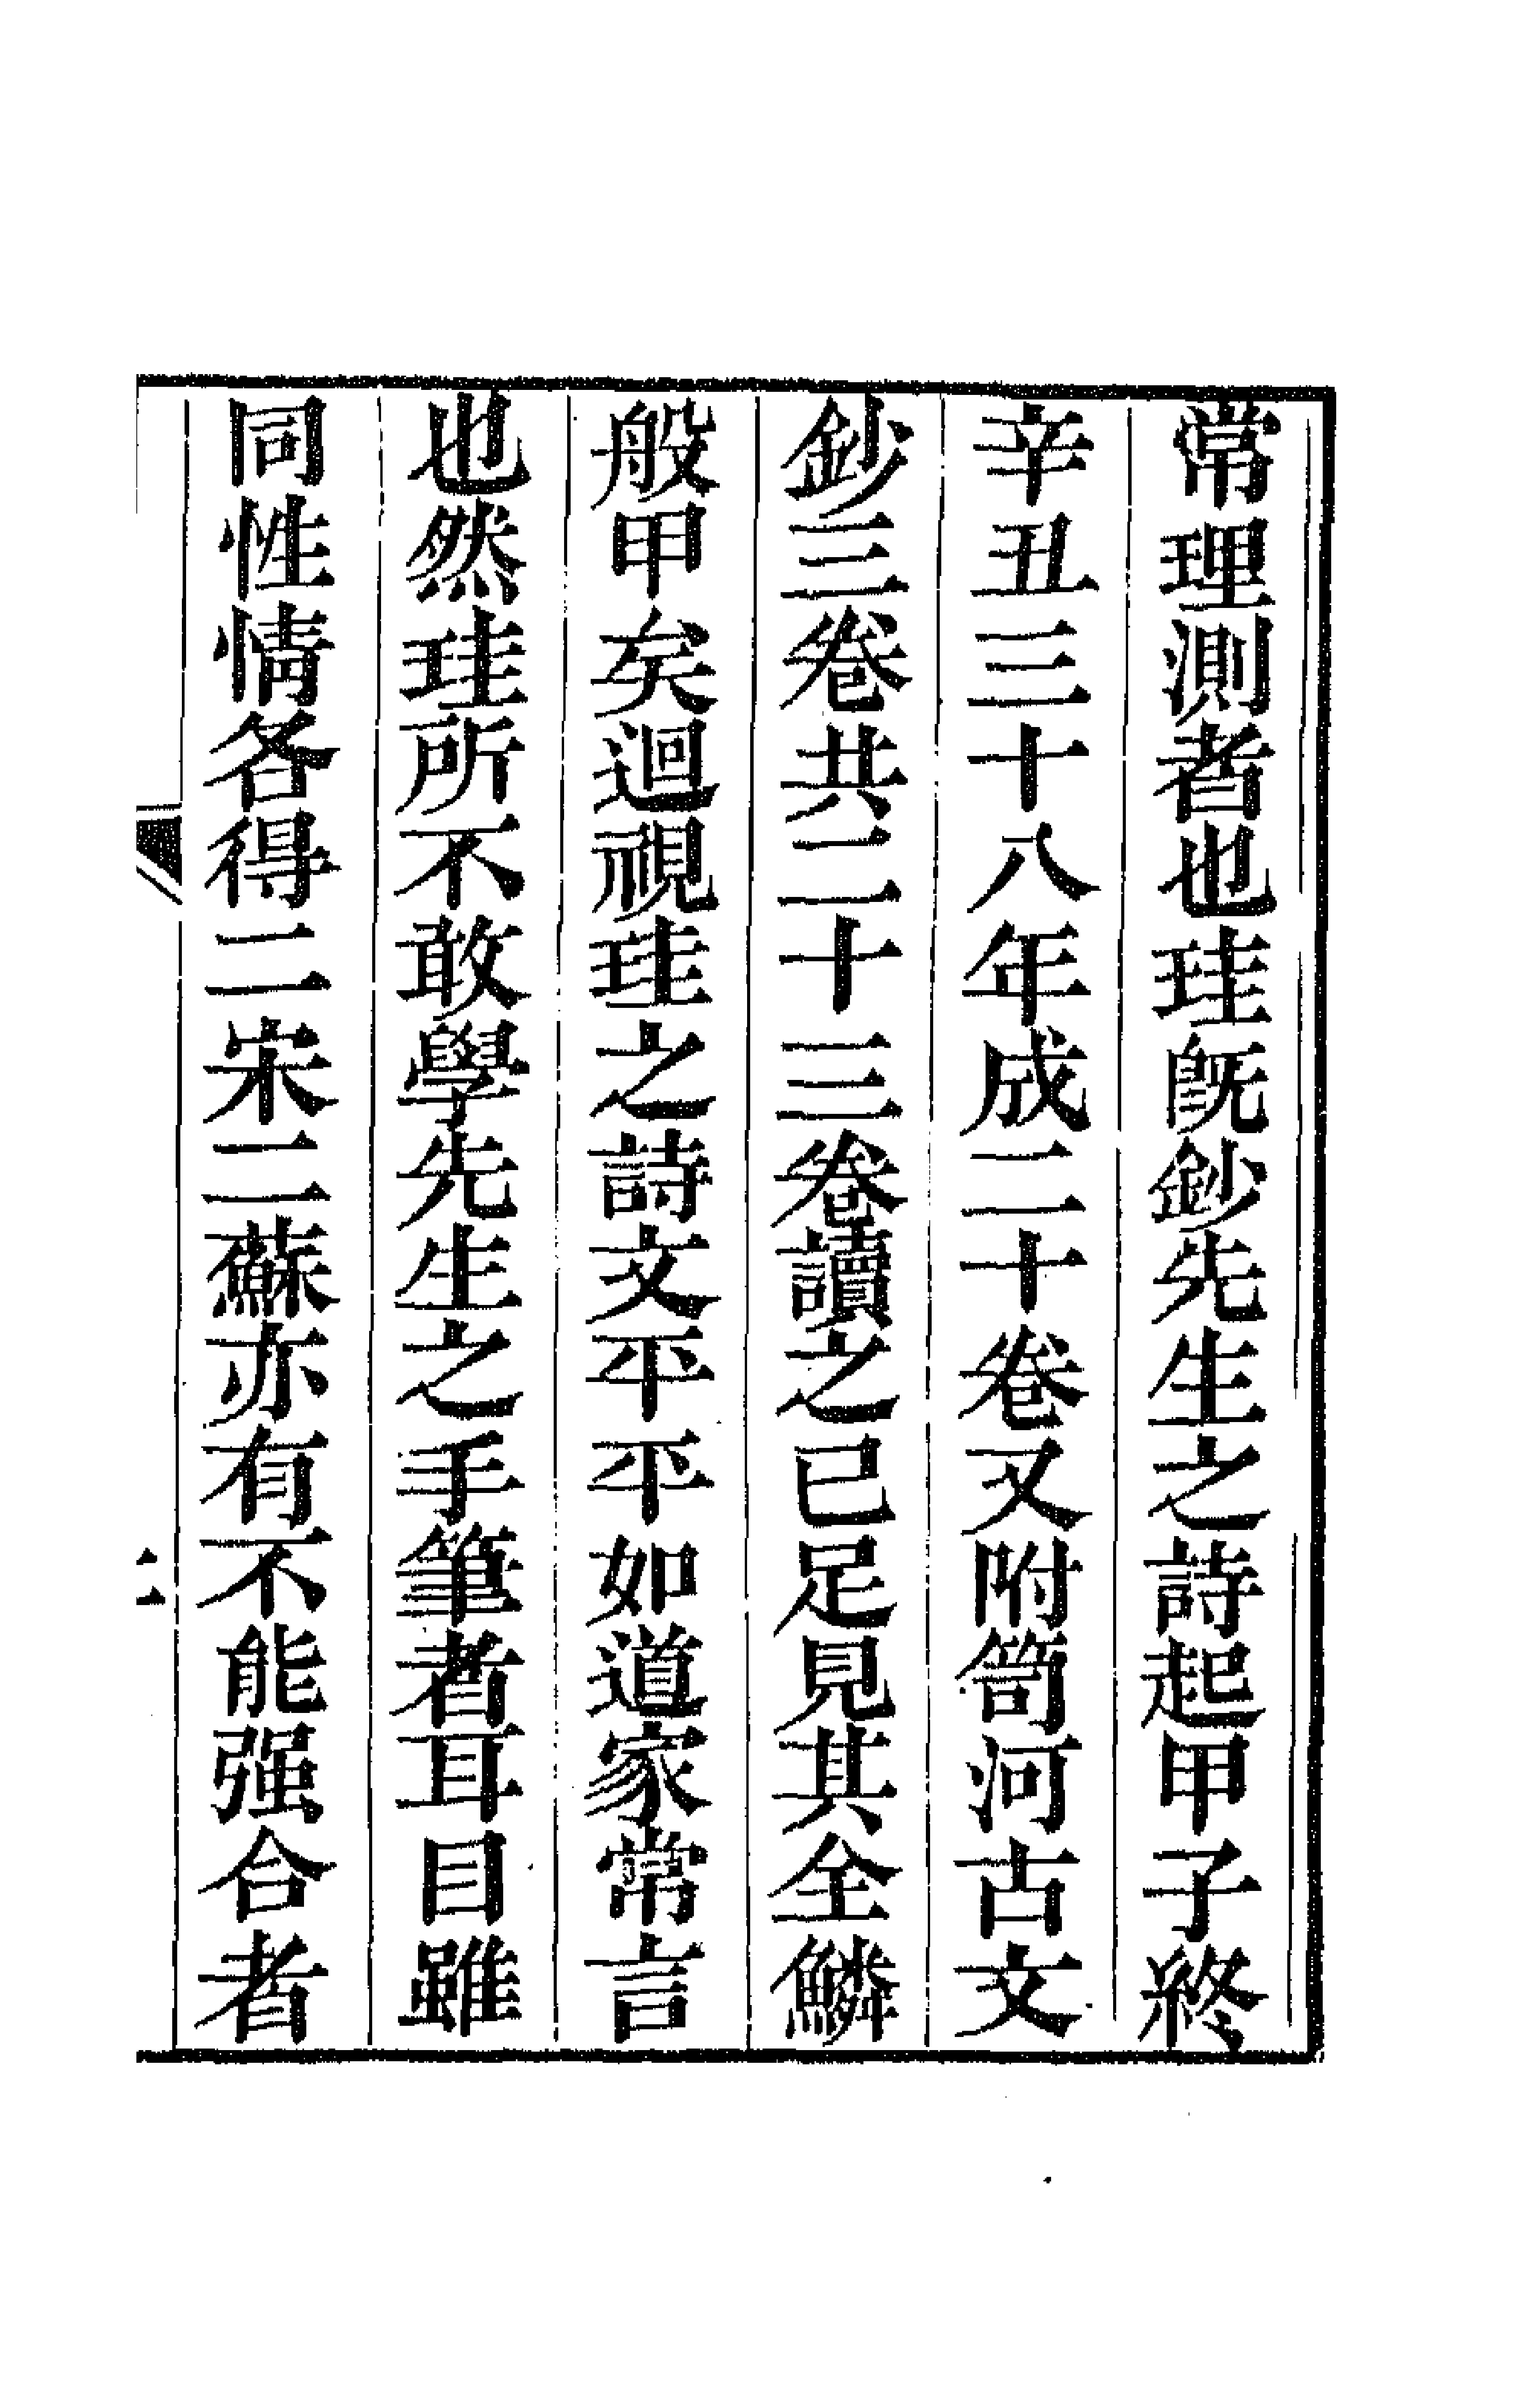 常理測者也珪旣鈔先生之詩起甲子終
辛丑三十八年成二十卷又附笥河古文
鈔三卷共二十三卷讀之已足見其全鱗
般甲矣迴視珪之詩文平平如道家常言
也然珪所不敢學先生之手筆者耳目雖
同性情各得二宋二蘇亦有不能强合者